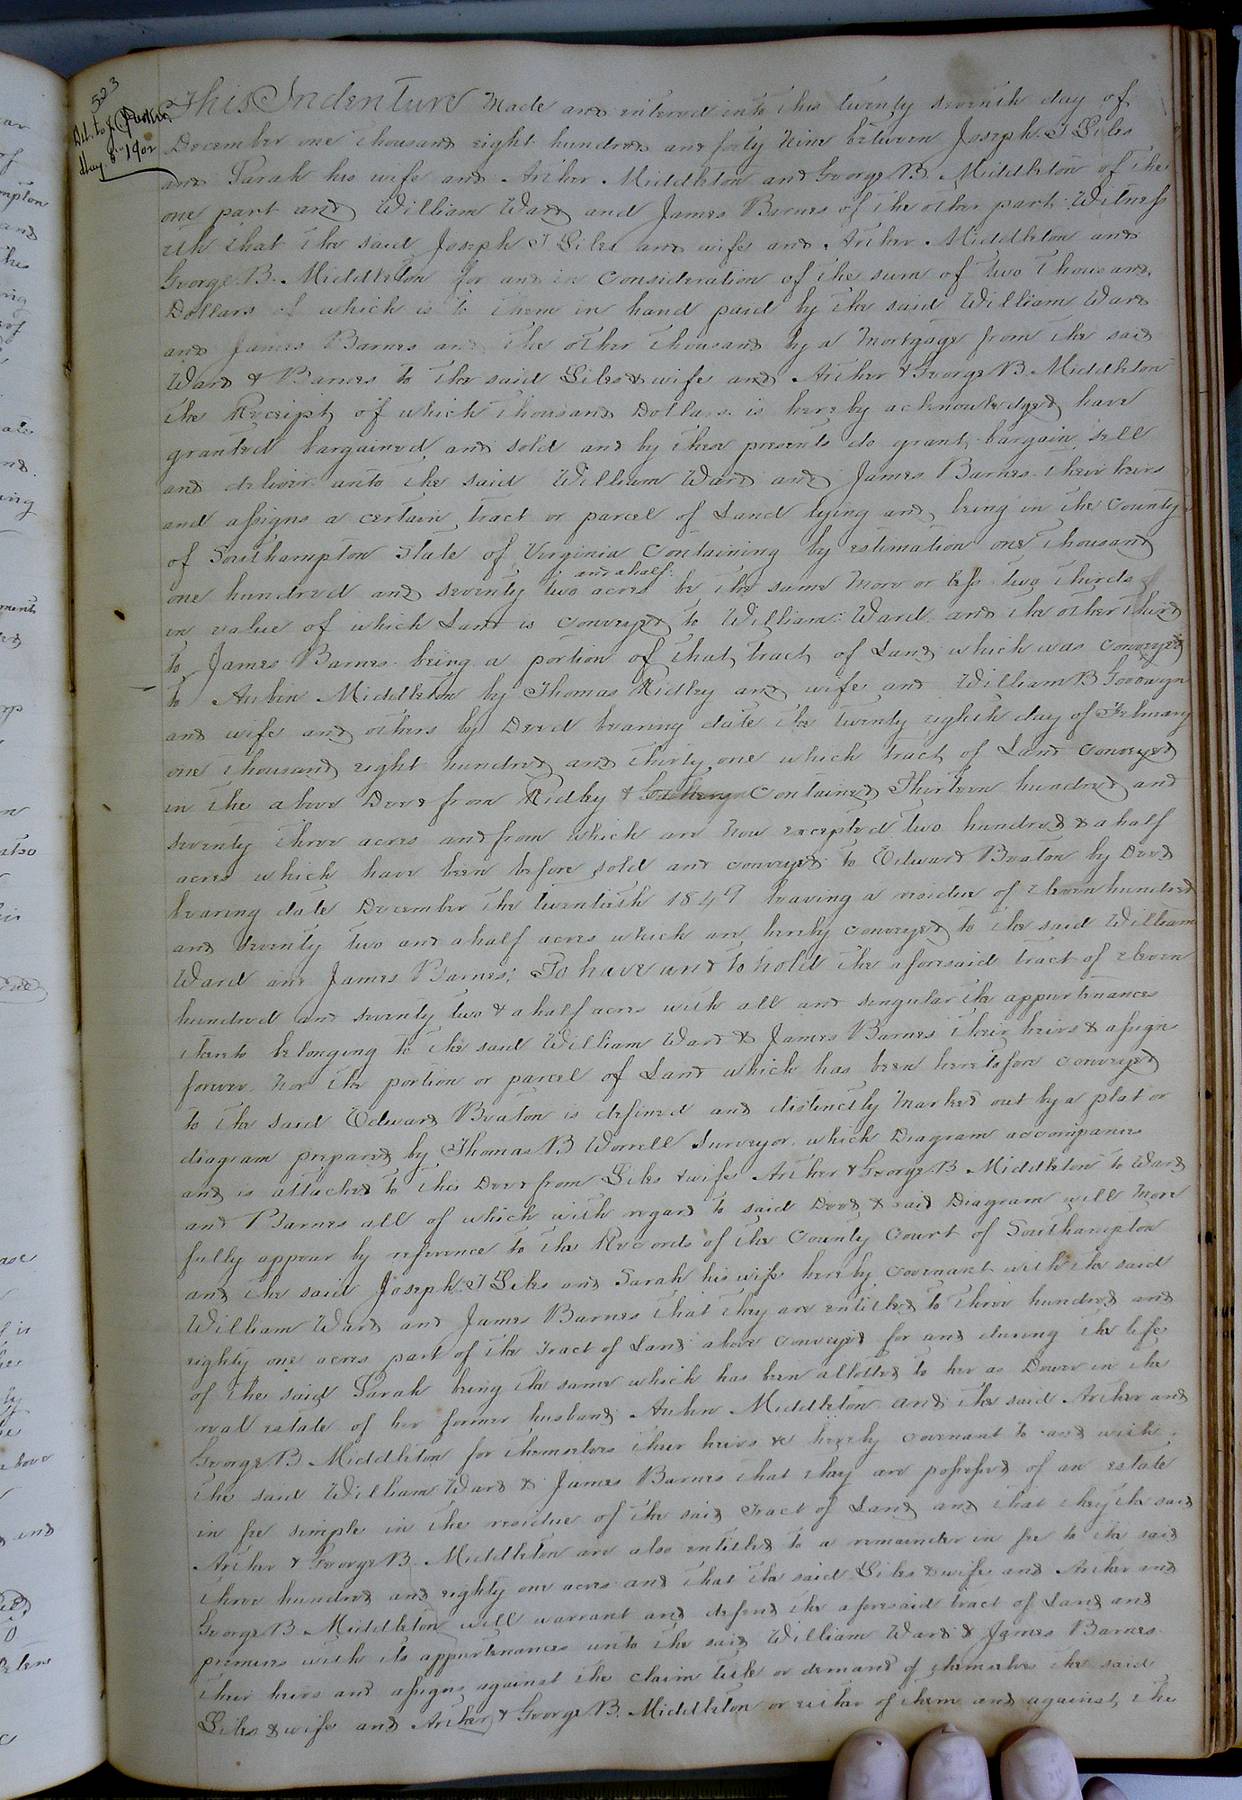 523
Del. to J. Parker
May 8th 1902
This Indenture Made and entered into this twenty seventh day of
December one thousand eight hundred and forty Nine between Joseph T Liles
and Sarah his wife and Archer Middleton and George B. Middleton of the
one part and William Ward and James Barnes of the other part Witness
eth that the said Joseph T Liles and wife and Archer Middleton and
George B. Middleton for and in Consideration of the sum of two Thousand
Dollars of which is to them in hand paid by the said William Ward
and James Barnes and the other thousand by a Mortgage from the said
Ward & Barnes to the said Liles & wife and Archer & George B Middleton
the Receipt of which thousand Dollars is hereby acknowledged have
granted bargained and sold and by these presents do grant bargain sell
and deliver unto the said William Ward and James Barnes their heirs
and assigns a certain tract or parcel of Land lying and being in the County
of Southampton State of Virginia Containing by estimation one thousand
one hundred and seventy two and a half acres be the same More or less two thirds
in value of which Land is conveyed to William Ward and the other third
to James Barnes being a portion of that tract of Land which was conveyed
to Middleton by Thomas Ridley and wife and William B Goodwyn
and wife and others by Deed bearing date the twenty eighth day of February
one thousand eight hundred and thirty one which tract of Land conveyed
in the above Deed from Ridley & Contained Thirteen hundred and
seventy three acres and from which are Now excepted two hundred & a half
acres which have been before sold and conveyed to Edward Beaton by Deed
bearing date December the twentieth 1849 leaving a residue of eleven hundred
and seventy two and a half acres which are hereby conveyed to the said William
Ward and James Barnes; To have and to hold the aforesaid tract of eleven
hundred and seventy two & a half acres with all and singular the appurtenances
thereto belonging to the said William Ward & James Barnes their heirs & assigns
forever. Nor the portion or parcel of Land which has been heretofore conveyed
to the said Edward Beaton is defined and distinctly Marked out by a plat or
diagram prepared by Thomas B Worrell Surveyor which Diagram accompanies
and is attached to this Deed from Liles & wife Archer & George B Middleton to Ward
and Barnes all of which with regard to said Deed & said Diagram will More
fully appear by reference to the Records of the County Court of Southampton
and the said Joseph T Liles and Sarah his wife hereby covenant with the said
William Ward and James Barnes that they are entitled to three hundred and
eighty one acres part of the tract of Land above conveyed for and during the life
of the said Sarah being the same which has been allotted to her as Dower in the
real estate of her former husband Middleton and the said Archer and
George B Middleton for themselves their heirs &c hereby covenant to and with
the said William Ward & James Barnes that they are possessed of an estate
in fee simple in the residue of the said tract of Land and that they the said
Archer & George B. Middleton are also entitled to a remainder in fee to the said
three hundred and eighty one acres and that the said Liles & wife and Archer and
George B Middleton will warrant and defend the aforesaid tract of Land and
premises with its appurtenances unto the said William Ward & James Barnes
their heirs and assigns against the claim title or demand of themselves the said
Liles & wife and Archer & George B. Middleton or either of them and against the